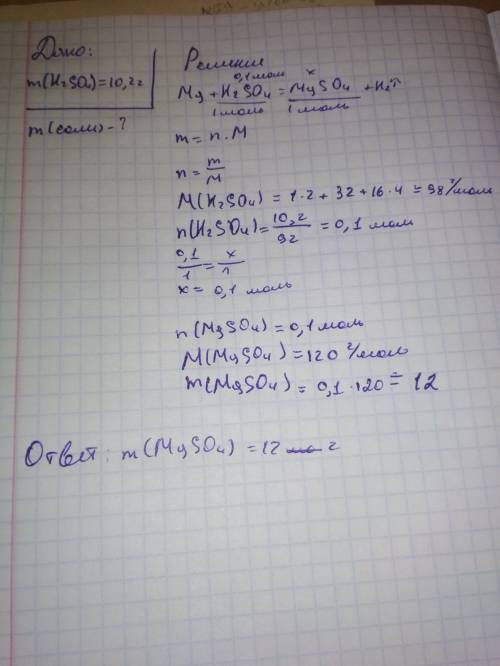 Дано:
m(H₂SO₄)=10,2г
m(соли)-?
Решение
0,1 моль x
Mg + H₂SO₄ = MgSO₄ + H₂↑
1 моль 1 моль
m = n · M
n = m/M
M(H₂SO₄) = 1·2 + 32 + 16·4 = 98 г/моль
n(H₂SO₄) = 10,2/92 = 0,1 моль
0,1/1 = x/1
x = 0,1 моль
n(MgSO₄) = 0,1 моль
M(MgSO₄) = 120 г/моль
m(MgSO₄) = 0,1 · 120 = 12
Ответ: m(MgSO₄) = 12 г